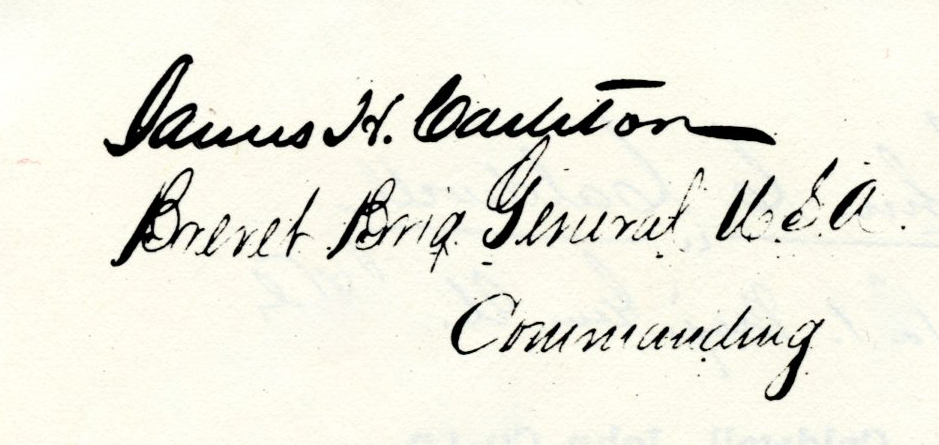 James H. Carleton
Brevet Brig General U.S.A.
Commanding